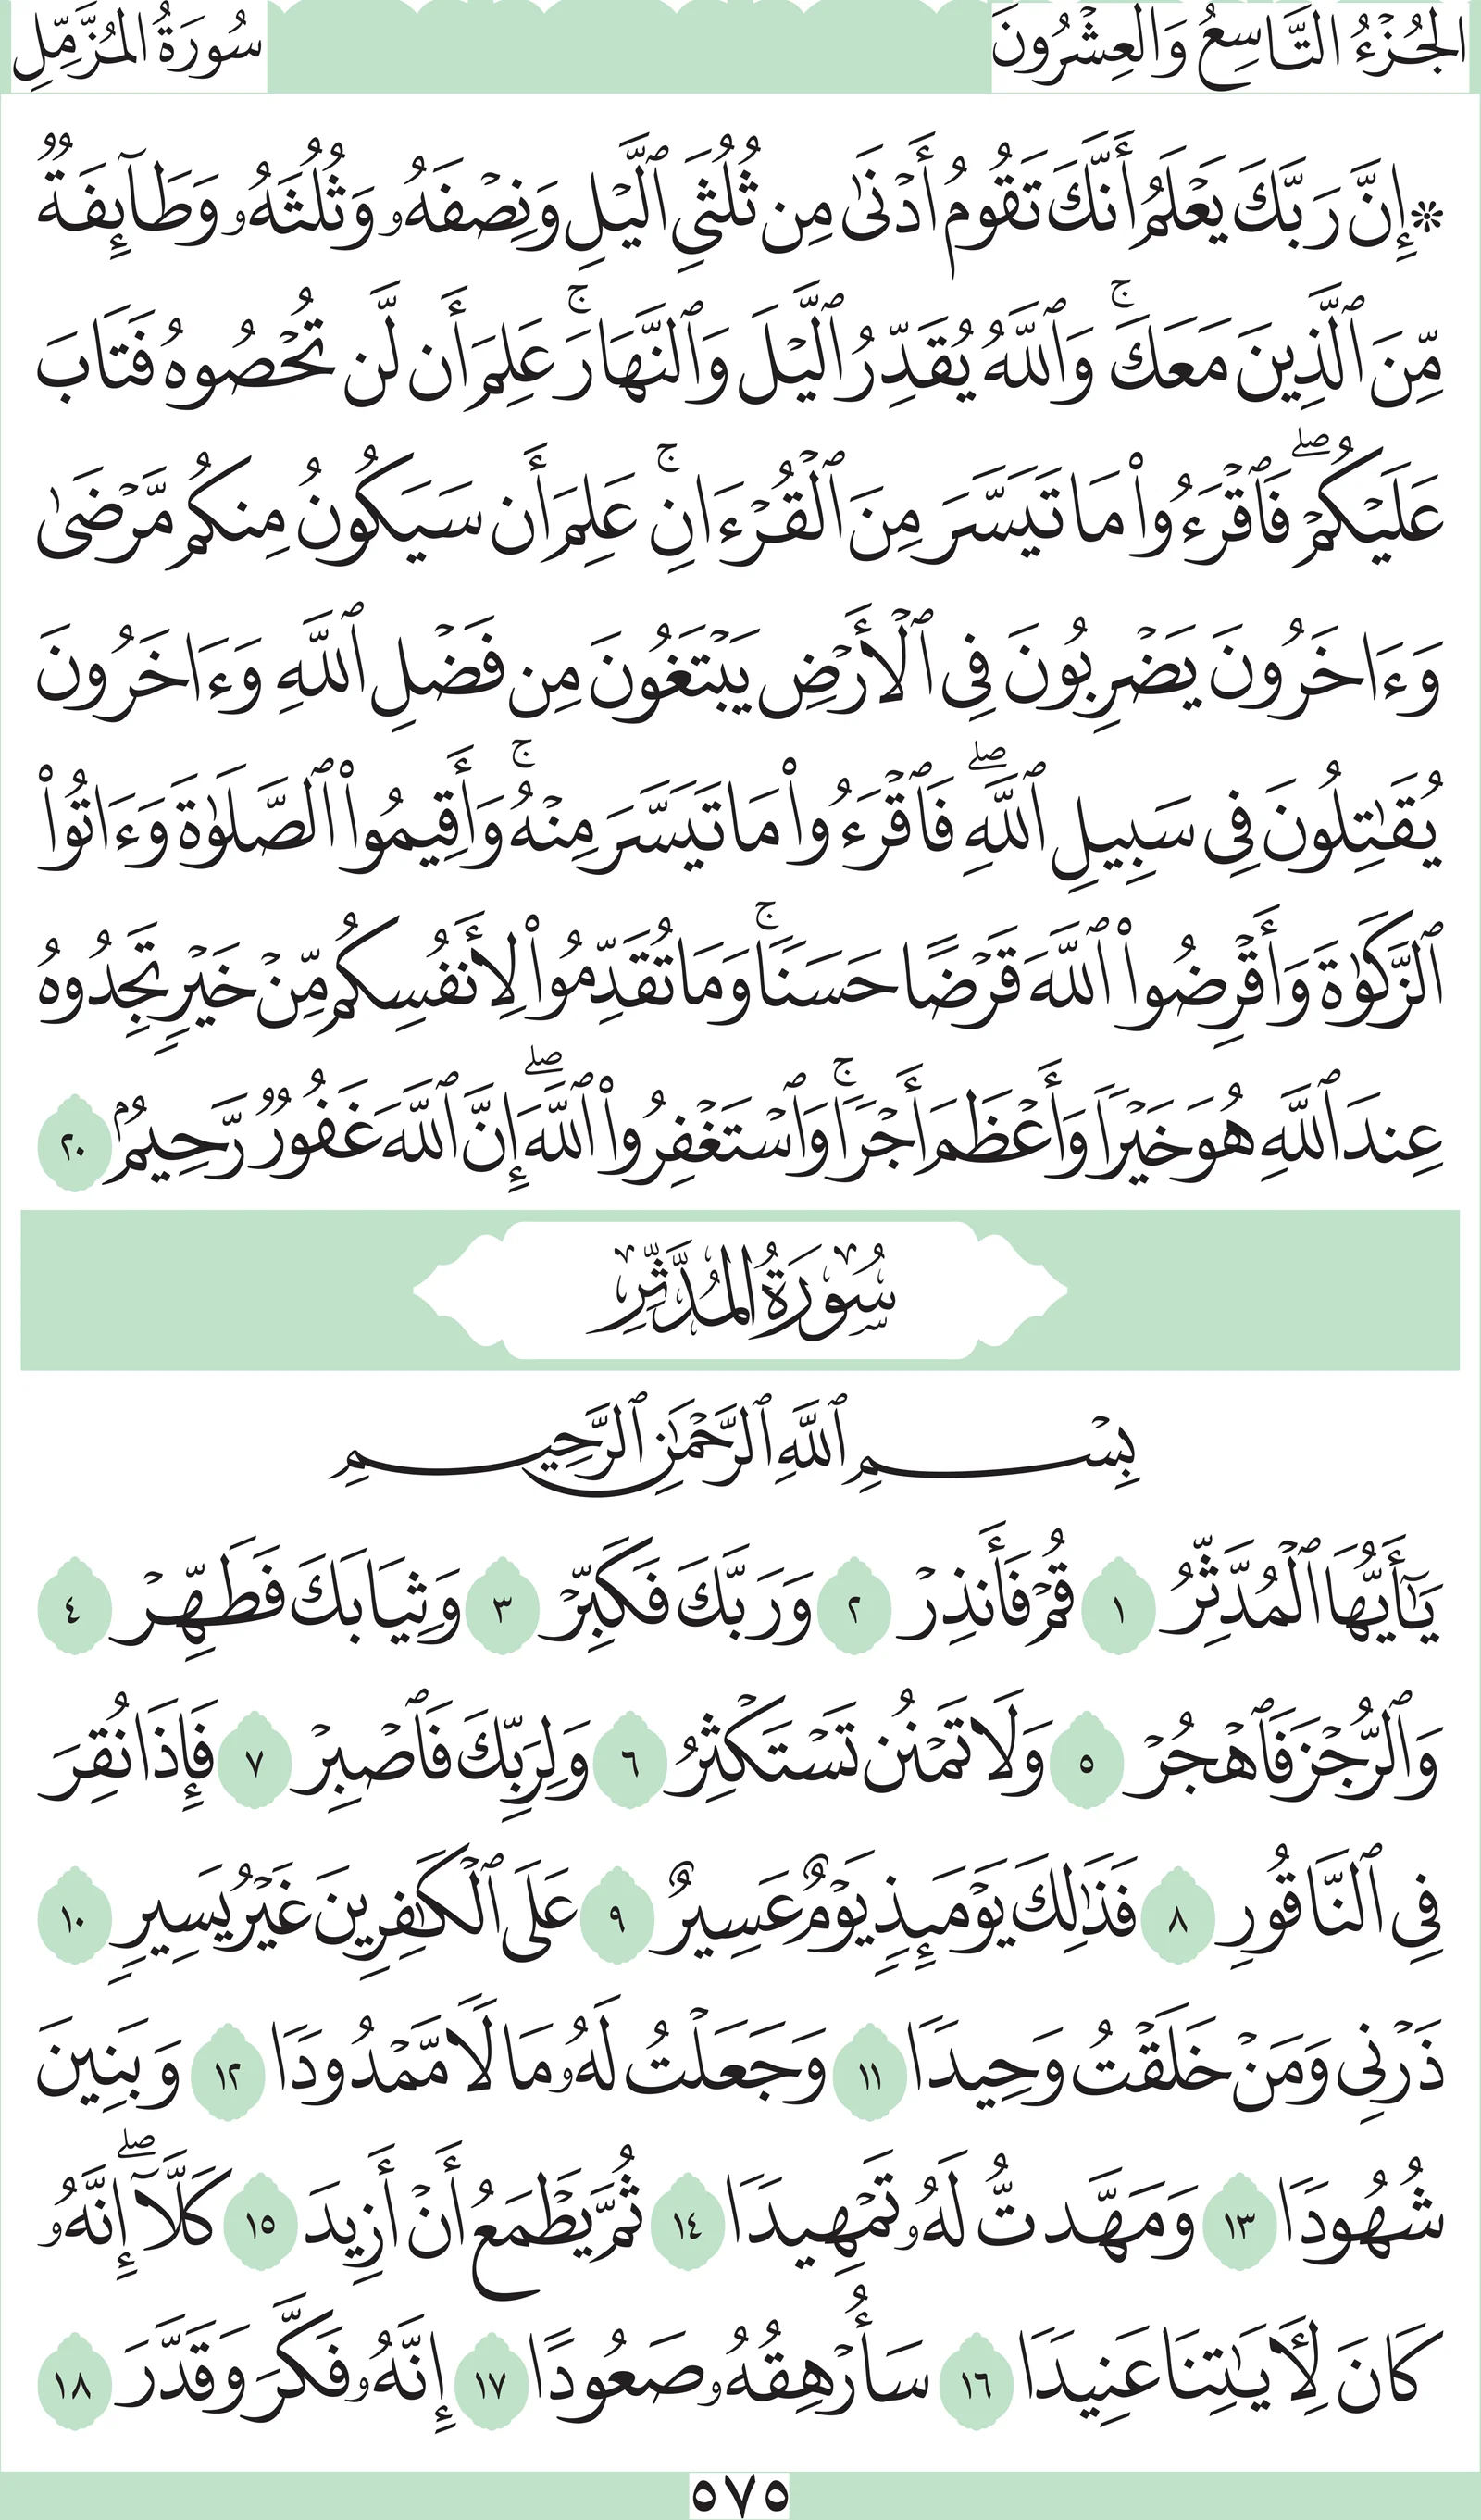 الجُزْءُ التَّاسِعُ وَالعِشْرُونَ
سُورَةُ المُزَّمِّلِ
۞إِنَّ رَبَّكَ يَعۡلَمُ أَنَّكَ تَقُومُ أَدۡنَىٰ مِن ثُلُثَيِ ٱلَّيۡلِ وَنِصۡفَهُۥ وَثُلُثَهُۥ وَطَآئِفَةٞ
مِّنَ ٱلَّذِينَ مَعَكَۚ وَٱللَّهُ يُقَدِّرُ ٱلَّيۡلَ وَٱلنَّهَارَۚ عَلِمَ أَن لَّن تُحۡصُوهُ فَتَابَ
عَلَيۡكُمۡۖ فَٱقۡرَءُواْ مَا تَيَسَّرَ مِنَ ٱلۡقُرۡءَانِۚ عَلِمَ أَن سَيَكُونُ مِنكُم مَّرۡضَىٰ
وَءَاخَرُونَ يَضۡرِبُونَ فِي ٱلۡأَرۡضِ يَبۡتَغُونَ مِن فَضۡلِ ٱللَّهِ وَءَاخَرُونَ
يُقَٰتِلُونَ فِي سَبِيلِ ٱللَّهِۖ فَٱقۡرَءُواْ مَا تَيَسَّرَ مِنۡهُۚ وَأَقِيمُواْ ٱلصَّلَوٰةَ وَءَاتُواْ
ٱلزَّكَوٰةَ وَأَقۡرِضُواْ ٱللَّهَ قَرۡضًا حَسَنٗاۚ وَمَا تُقَدِّمُواْ لِأَنفُسِكُم مِّنۡ خَيۡرٖ تَجِدُوهُ
عِندَ ٱللَّهِ هُوَ خَيۡرٗا وَأَعۡظَمَ أَجۡرٗاۚ وَٱسۡتَغۡفِرُواْ ٱللَّهَۖ إِنَّ ٱللَّهَ غَفُورٞ رَّحِيمُۢ ٢٠
سُورَةُ المُدَّثِّرِ
بِسۡمِ ٱللَّهِ ٱلرَّحۡمَٰنِ ٱلرَّحِيمِ
يَٰٓأَيُّهَا ٱلۡمُدَّثِّرُ ١ قُمۡ فَأَنذِرۡ ٢ وَرَبَّكَ فَكَبِّرۡ ٣ وَثِيَابَكَ فَطَهِّرۡ ٤
وَٱلرُّجۡزَ فَٱهۡجُرۡ ٥ وَلَا تَمۡنُن تَسۡتَكۡثِرُ ٦ وَلِرَبِّكَ فَٱصۡبِرۡ ٧ فَإِذَا نُقِرَ
فِي ٱلنَّاقُورِ ٨ فَذَٰلِكَ يَوۡمَئِذٖ يَوۡمٌ عَسِيرٌ ٩ عَلَى ٱلۡكَٰفِرِينَ غَيۡرُ يَسِيرٖ ١٠
ذَرۡنِي وَمَنۡ خَلَقۡتُ وَحِيدٗا ١١ وَجَعَلۡتُ لَهُۥ مَالٗا مَّمۡدُودٗا ١٢ وَبَنِينَ
شُهُودٗا ١٣ وَمَهَّدتُّ لَهُۥ تَمۡهِيدٗا ١٤ ثُمَّ يَطۡمَعُ أَنۡ أَزِيدَ ١٥ كَلَّآۖ إِنَّهُۥ
كَانَ لِأٓيَٰتِنَا عَنِيدٗا ١٦ سَأُرۡهِقُهُۥ صَعُودًا ١٧ إِنَّهُۥ فَكَّرَ وَقَدَّرَ ١٨
٥٧٥